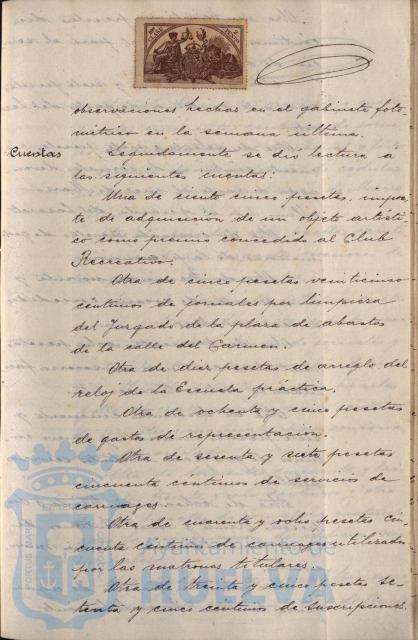 observaciones hechas en el gabinete foto-
métrico en la semana última.
Cuentas
Seguidamente se dió lectura á
las siguientes cuentas:
Una de ciento cinco pesetas, impor-
te de adquisición de un objeto artísti-
co como premio concedido al Club
Recreativo.
Otra de cinco pesetas veinticinco
céntimos de jornales por limpieza
del Juzgado de la plaza de abastos
de la calle del Carmen.
Otra de diez pesetas de arreglo del
reloj de la Escuela práctica.
Otra de ochenta y cinco pesetas
de gastos de representación.
Otra de sesenta y siete pesetas
cincuenta céntimos de servicios de
carruages.
Otra de cuarenta y ocho pesetas cin-
cuenta céntimos de carruages utilizados
por las matronas titulares.
Otra de treinta y cinco pesetas se-
tenta y cinco céntimos de suscripciones
Ayuntamiento de
HUELVA
PORTUS MARIS